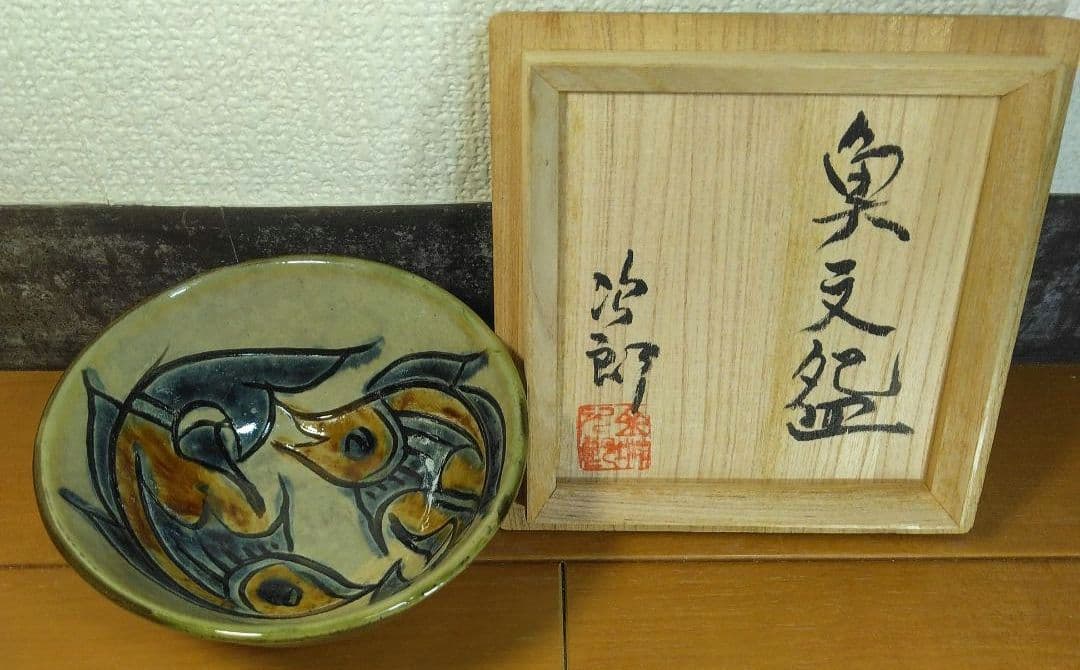 魚文盌
次郎